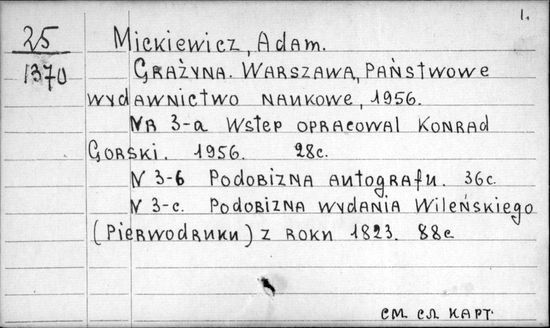 1.
25
1370
Mickiewicz, Adam.
Grażyna. Warszawa, Państwowe
wydawnictwo naukowe, 1956.
NR 3-a Wstep opracowal Konrad
Gorski. 1956. 28c.
N 3-б Podobizna autografu. 36c.
N 3-c. Podobizna wydania Wileńskiego
(Pierwodruku) z roku 1823. 88c
см. сл карт.